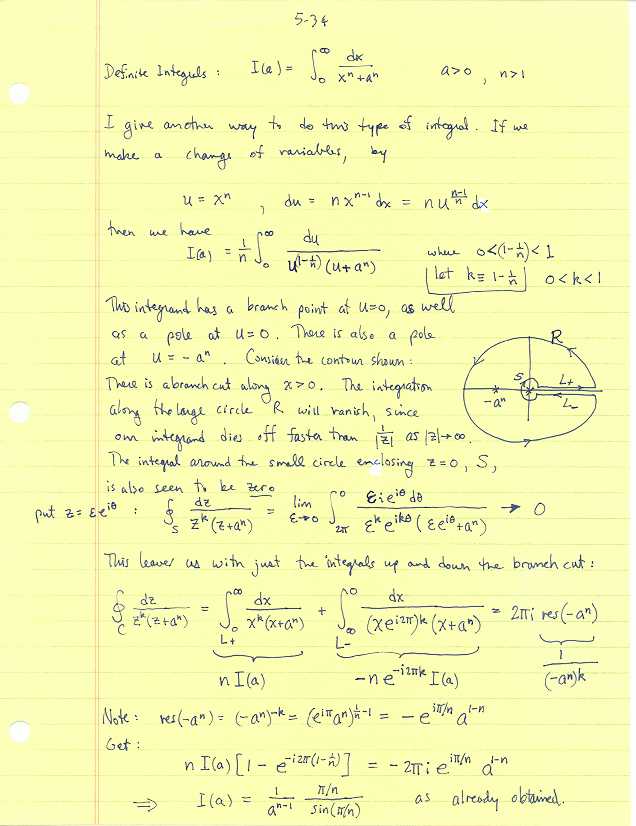 5-34
Definite Integrals : I(a) = ∫₀^∞ dx / (xⁿ + aⁿ)    a>0 , n>1
I give another way to do this type of integral. If we
make a change of variables, by
u = xⁿ , du = n xⁿ⁻¹ dx = n u^((n-1)/n) dx
then we have
I(a) = 1/n ∫₀^∞ du / (u^(1-1/n) (u+aⁿ))    where 0<(1-1/n)<1
let k ≡ 1-1/n    0<k<1
This integrand has a branch point at u=0, as well
as a pole at u=0. There is also a pole
at u = -aⁿ. Consider the contour shown:
R
S L+
-aⁿ L-
There is a branch cut along x>0. The integration
along the large circle R will vanish, since
our integrand dies off faster than 1/|z| as |z|→∞.
The integral around the small circle enclosing z=0, S,
is also seen to be zero
put z = εe^(iθ) : ∮_S dz / (z^k (z+aⁿ)) = lim_(ε→0) ∫_(2π)^0 εie^(iθ) dθ / (ε^k e^(ikθ) (εe^(iθ)+aⁿ)) → 0
This leaves us with just the integrals up and down the branch cut:
∮_C dz / (z^k (z+aⁿ)) = ∫₀^∞ dx / (x^k (x+aⁿ)) + ∫_∞^0 dx / ((xe^(i2π))^k (x+aⁿ)) = 2πi res(-aⁿ)
L+    L-
n I(a)    -n e^(-i2πk) I(a)    1/(-aⁿ)^k
Note: res(-aⁿ) = (-aⁿ)^(-k) = (e^(iπ) aⁿ)^(1/n - 1) = -e^(iπ/n) a^(1-n)
Get:
n I(a) [1 - e^(-i2π(1-1/n))] = -2πi e^(iπ/n) a^(1-n)
⇒ I(a) = 1/a^(n-1) (π/n)/sin(π/n)    as already obtained.